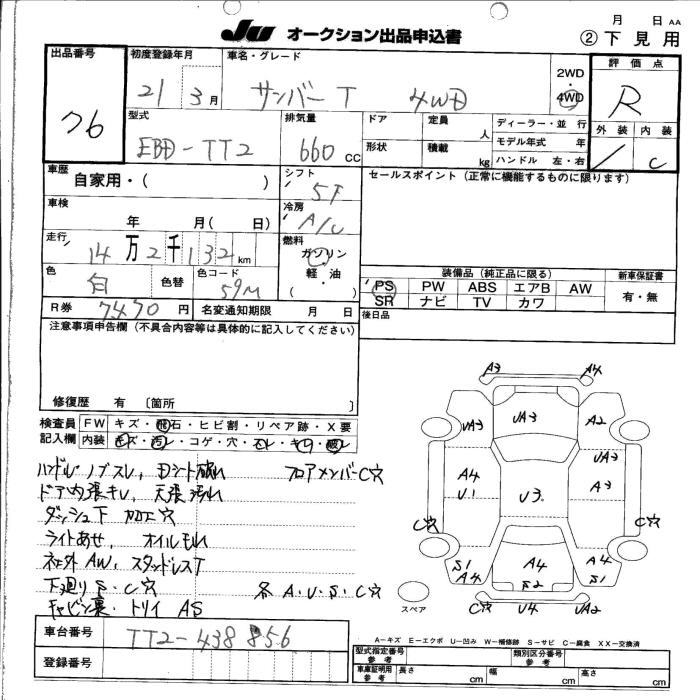 月 日 AA
JU オークション出品申込書 ② 下見用
出品番号 初度登録年月 車名・グレード 評価点
76 21 3月 サンバー T 4WD 2WD 4WD R
型式 排気量 ドア 定員 人 ディーラー・並行 外装 内装
EBD-TT2 660 cc 形状 積載 kg モデル年式 年 ハンドル 左・右 / C
車歴 自家用・( ) シフト 5F セールスポイント(正常に機能するものに限ります)
車検 年 月( 日) 冷房 A/C
走行 14万2千132km 燃料 ガソリン 軽・油 ( )
色 白 色替 色コード 59M 装備品(純正品に限る) 新車保証書
PS PW ABS エアB AW 有・無
SR ナビ TV カワ
R券 7470円 名変通知期限 月 日 後日品
注意事項申告欄(不具合内容等は具体的に記入してください)
修復歴 有 〔箇所
検査員記入欄 FW キズ・飛石・ヒビ割・リペア跡・X要
内装 キズ・汚レ・コゲ・穴・スレ・キレ・破レ
ハンドル・ノブスレ、Dシート破れ フロアメンバーC穴
ドア内張キレ、天張汚れ
ダッシュ下 加工穴
ライトあせ、オイルもれ
社外AW、スタッドレスT
下廻りS・C穴 各A・U・S・C穴
キャビン裏・トリイ AS
A3 A4
UA3 UA3 A2
UA3
A4 U1 U3 A3
C穴 C穴
S1 A4 A4 S2 A4 S1
スペア C穴 U4 UA2
車台番号 TT2-438856
登録番号
A-キズ E-エクボ U-凹み W-補修跡 S-サビ C-腐食 XX-交換済
型式指定番号 参考 類別区分番号 参考
車庫証明用 参考 長さ cm 幅 cm 高さ cm